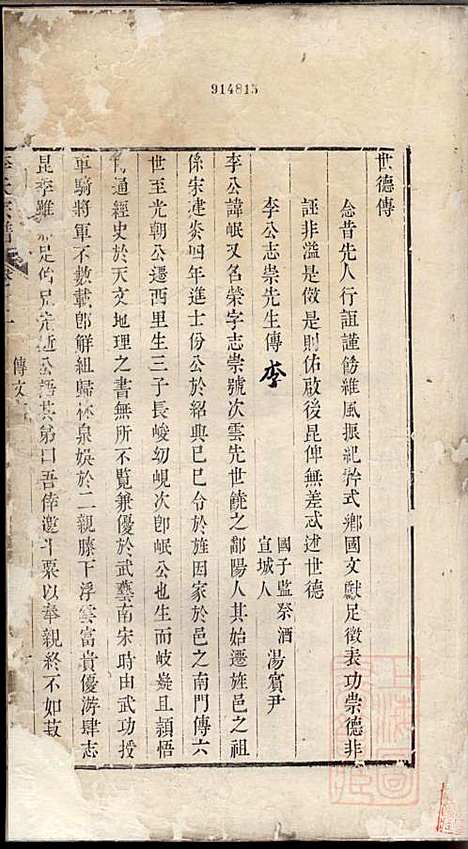 914815
世德傳
念昔先人行誼謹飭維風振紀矜式鄉國文獻足徵表功崇德非
誣非溢是倣是則佑啟後昆俾無差忒述世德
李公志崇先生傳
李
國子監祭酒
宣城人
湯賓尹
李公諱岷又名榮字志崇號次雲先世饒之鄱陽人其始遷旌邑之祖
係宋建炎四年進士份公於紹興巳巳令於旌因家於邑之南門傳六
世至光朝公遷西里生三子長峻幼峴次卽岷公也生而岐嶷且頴悟
博通經史於天文地理之書無所不覽兼優於武藝南宋時由武功授
車騎將軍不數載卽解組歸林泉娛於二親膝下浮雲富貴優游肆志
昆季雖 足 公語其弟曰吾倖邀斗粟以奉親終不如菽
李氏宗譜
卷
傳文
上海圖書館藏